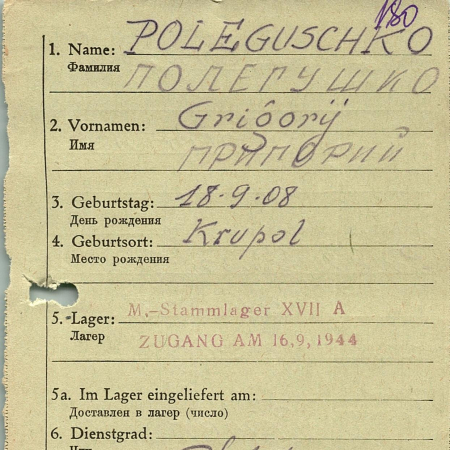 180
1. Name: POLEGUSCHKO
Фамилия ПОЛЕГУШКО
2. Vornamen: Grigorij
Имя ПРИГОРИЙ
3. Geburtstag: 18.9.08
День рождения
4. Geburtsort: Krupol
Место рождения
5. Lager: M.-Stammlager XVII A
Лагер ZUGANG AM 16,9,1944
5a. Im Lager eingeliefert am:
Доставлен в лагер (число)
6. Dienstgrad: